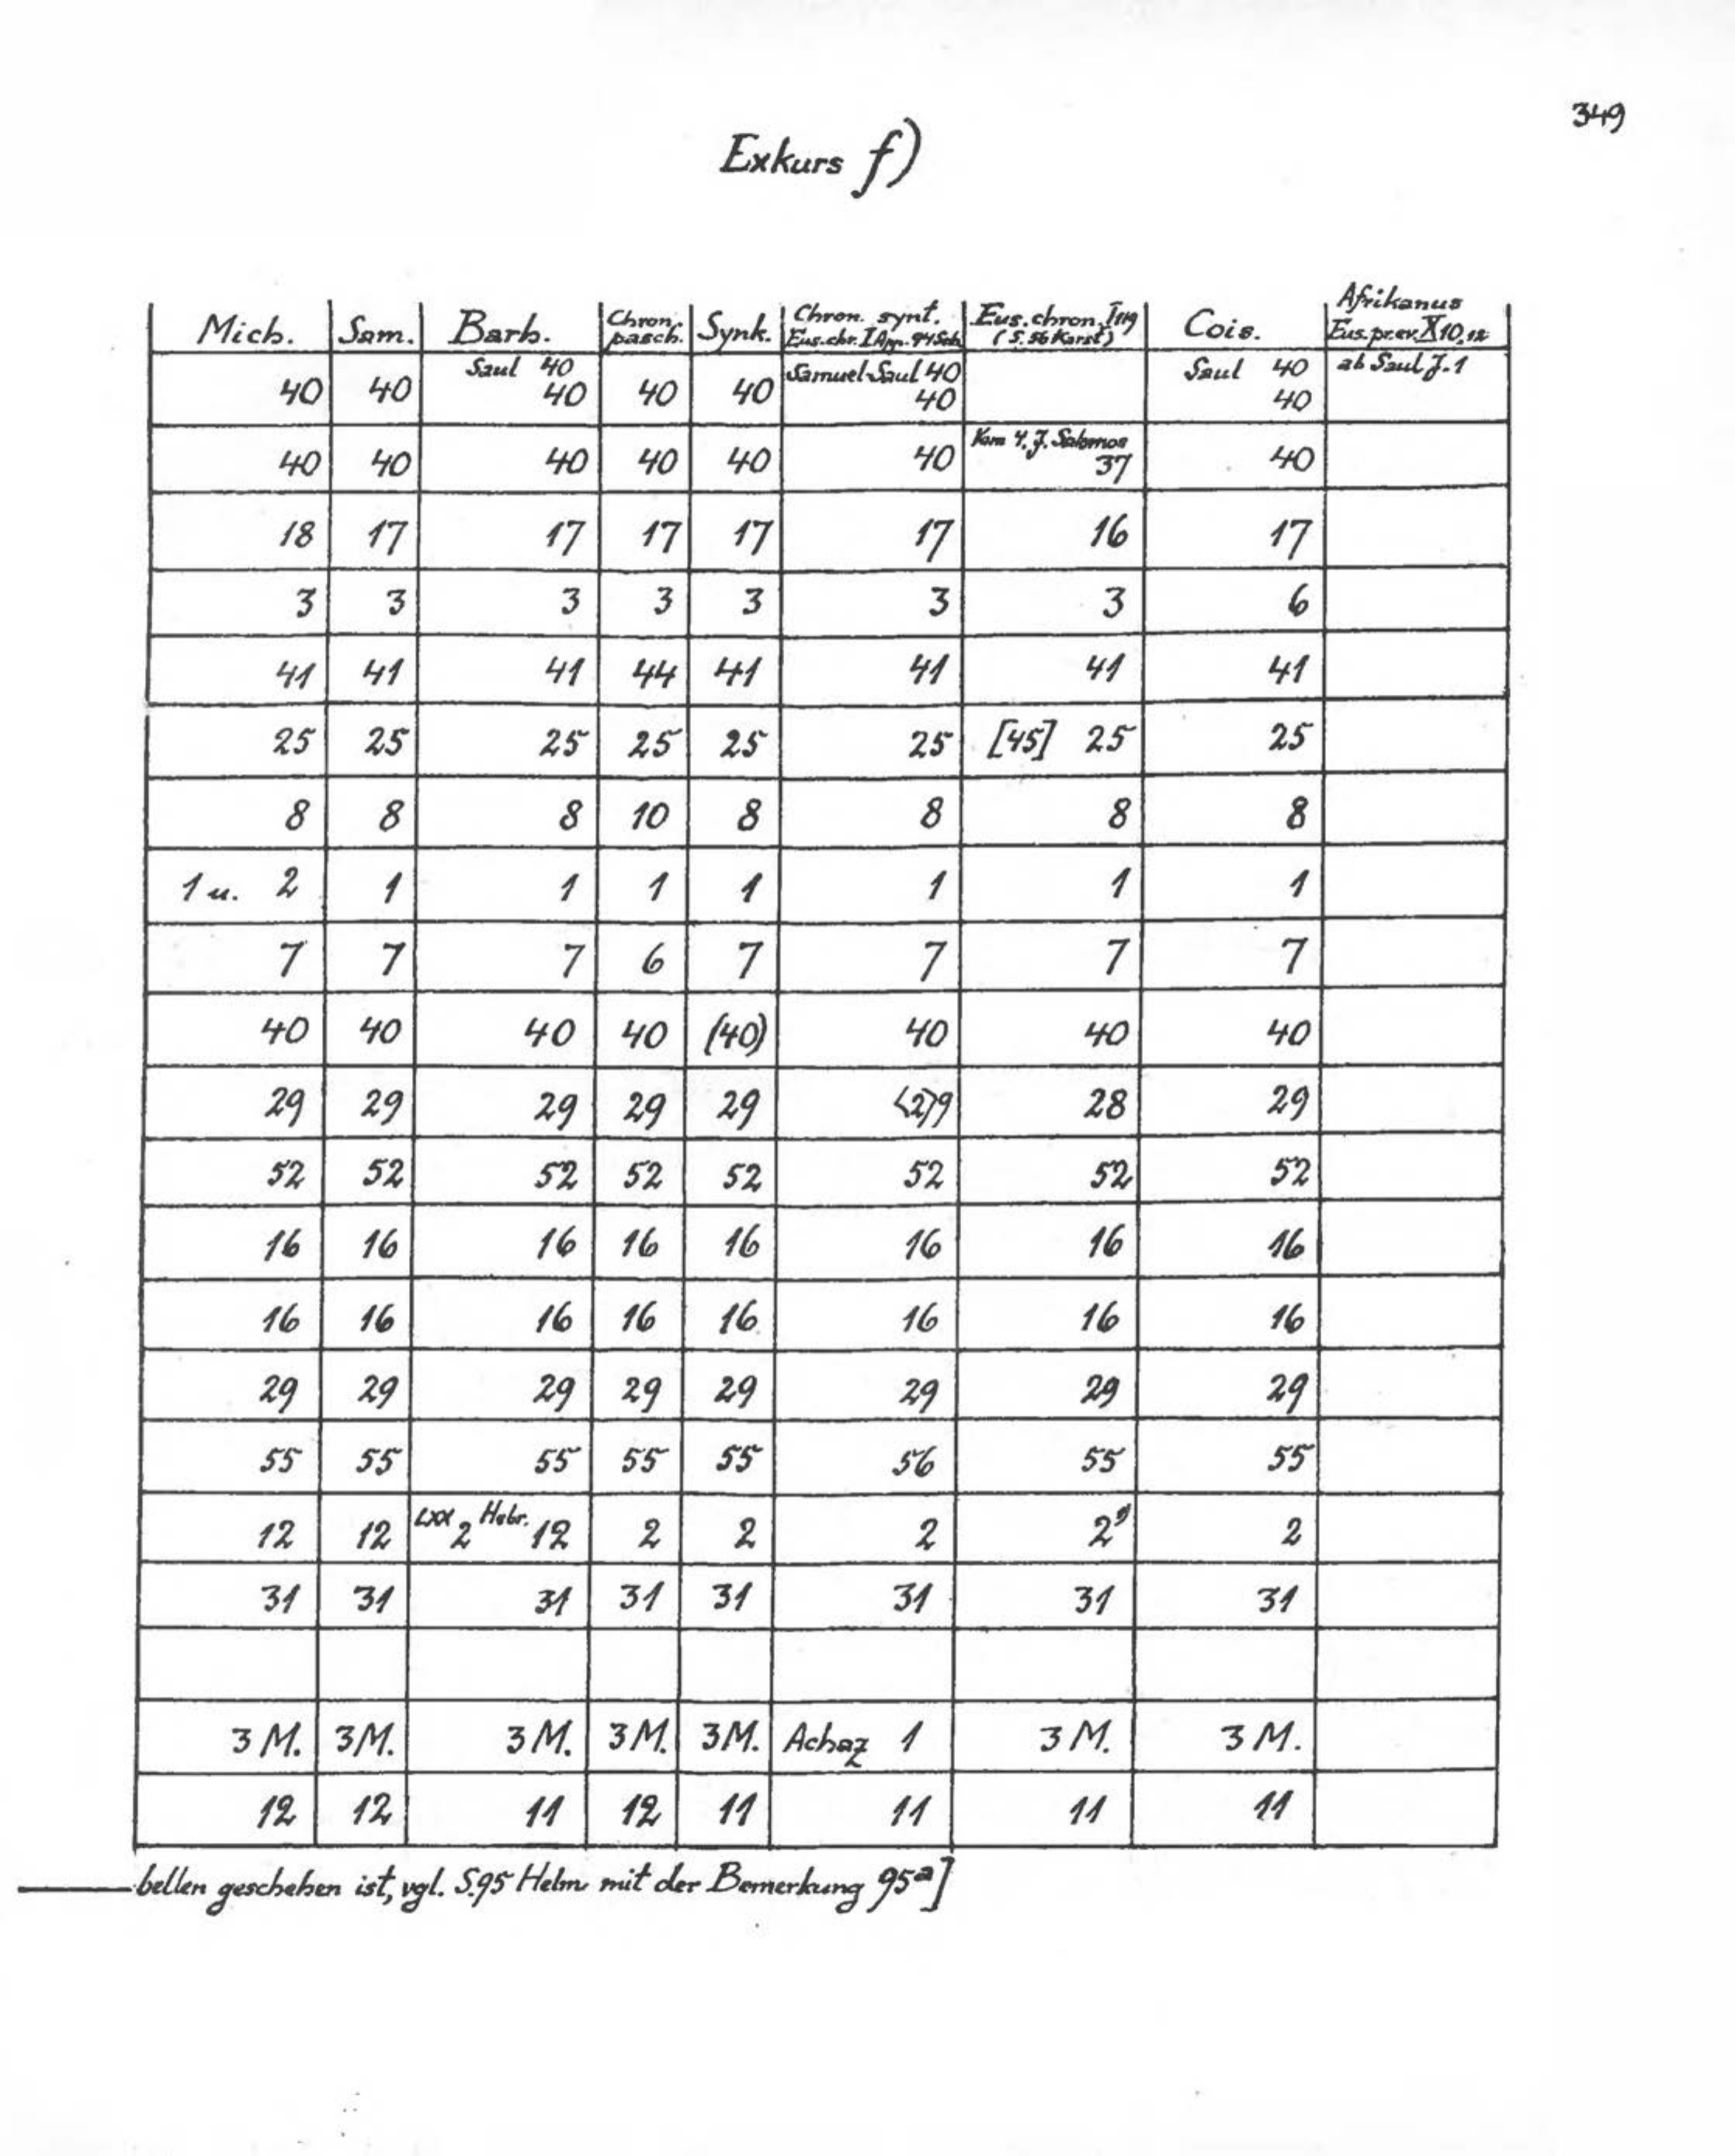 349
Exkurs f)
Mich. Sam. Barb. Chron. pasch. Synk. Chron. synt. Eus. chr. I App. 94 Sch. Eus. chron. I 119 (S. 56 Karst) Cois. Afrikanus Eus. pr. ev. X 10,12
40 40 Saul 40 40 40 40 Samuel-Saul 40 40 Saul 40 40 ab Saul J. 1
40 40 40 40 40 40 Vom 4. J. Salomos 37 40
18 17 17 17 17 17 16 17
3 3 3 3 3 3 3 6
41 41 41 44 41 41 41 41
25 25 25 25 25 25 [45] 25 25
8 8 8 10 8 8 8 8
1 u. 2 1 1 1 1 1 1 1
7 7 7 6 7 7 7 7
40 40 40 40 (40) 40 40 40
29 29 29 29 29 <2>9 28 29
52 52 52 52 52 52 52 52
16 16 16 16 16 16 16 16
16 16 16 16 16 16 16 16
29 29 29 29 29 29 29 29
55 55 55 55 55 56 55 55
12 12 LXX 2 Hebr. 12 2 2 2 2 2
31 31 31 31 31 31 31 31
3 M. 3 M. 3 M. 3 M. 3 M. Achaz 1 3 M. 3 M.
12 12 11 12 11 11 11 11
bellen geschehen ist, vgl. S. 95 Helm mit der Bemerkung 95a]